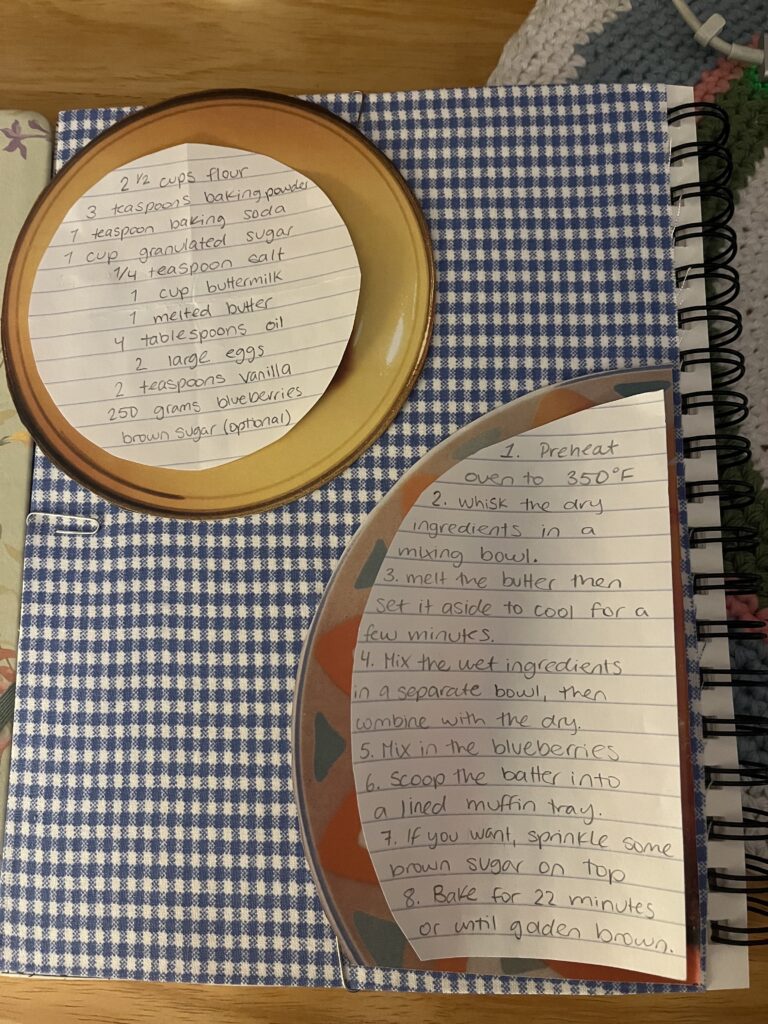 2 1/2 cups flour
3 teaspoons baking powder
1 teaspoon baking soda
1 cup granulated sugar
1/4 teaspoon salt
1 cup buttermilk
1 melted butter
4 tablespoons oil
2 large eggs
2 teaspoons vanilla
250 grams blueberries
brown sugar (optional)
1. Preheat
oven to 350°F
2. Whisk the dry
ingredients in a
mixing bowl.
3. melt the butter then
set it aside to cool for a
few minutes.
4. Mix the wet ingredients
in a separate bowl, then
combine with the dry.
5. Mix in the blueberries
6. Scoop the batter into
a lined muffin tray.
7. If you want, sprinkle some
brown sugar on top
8. Bake for 22 minutes
or until golden brown.